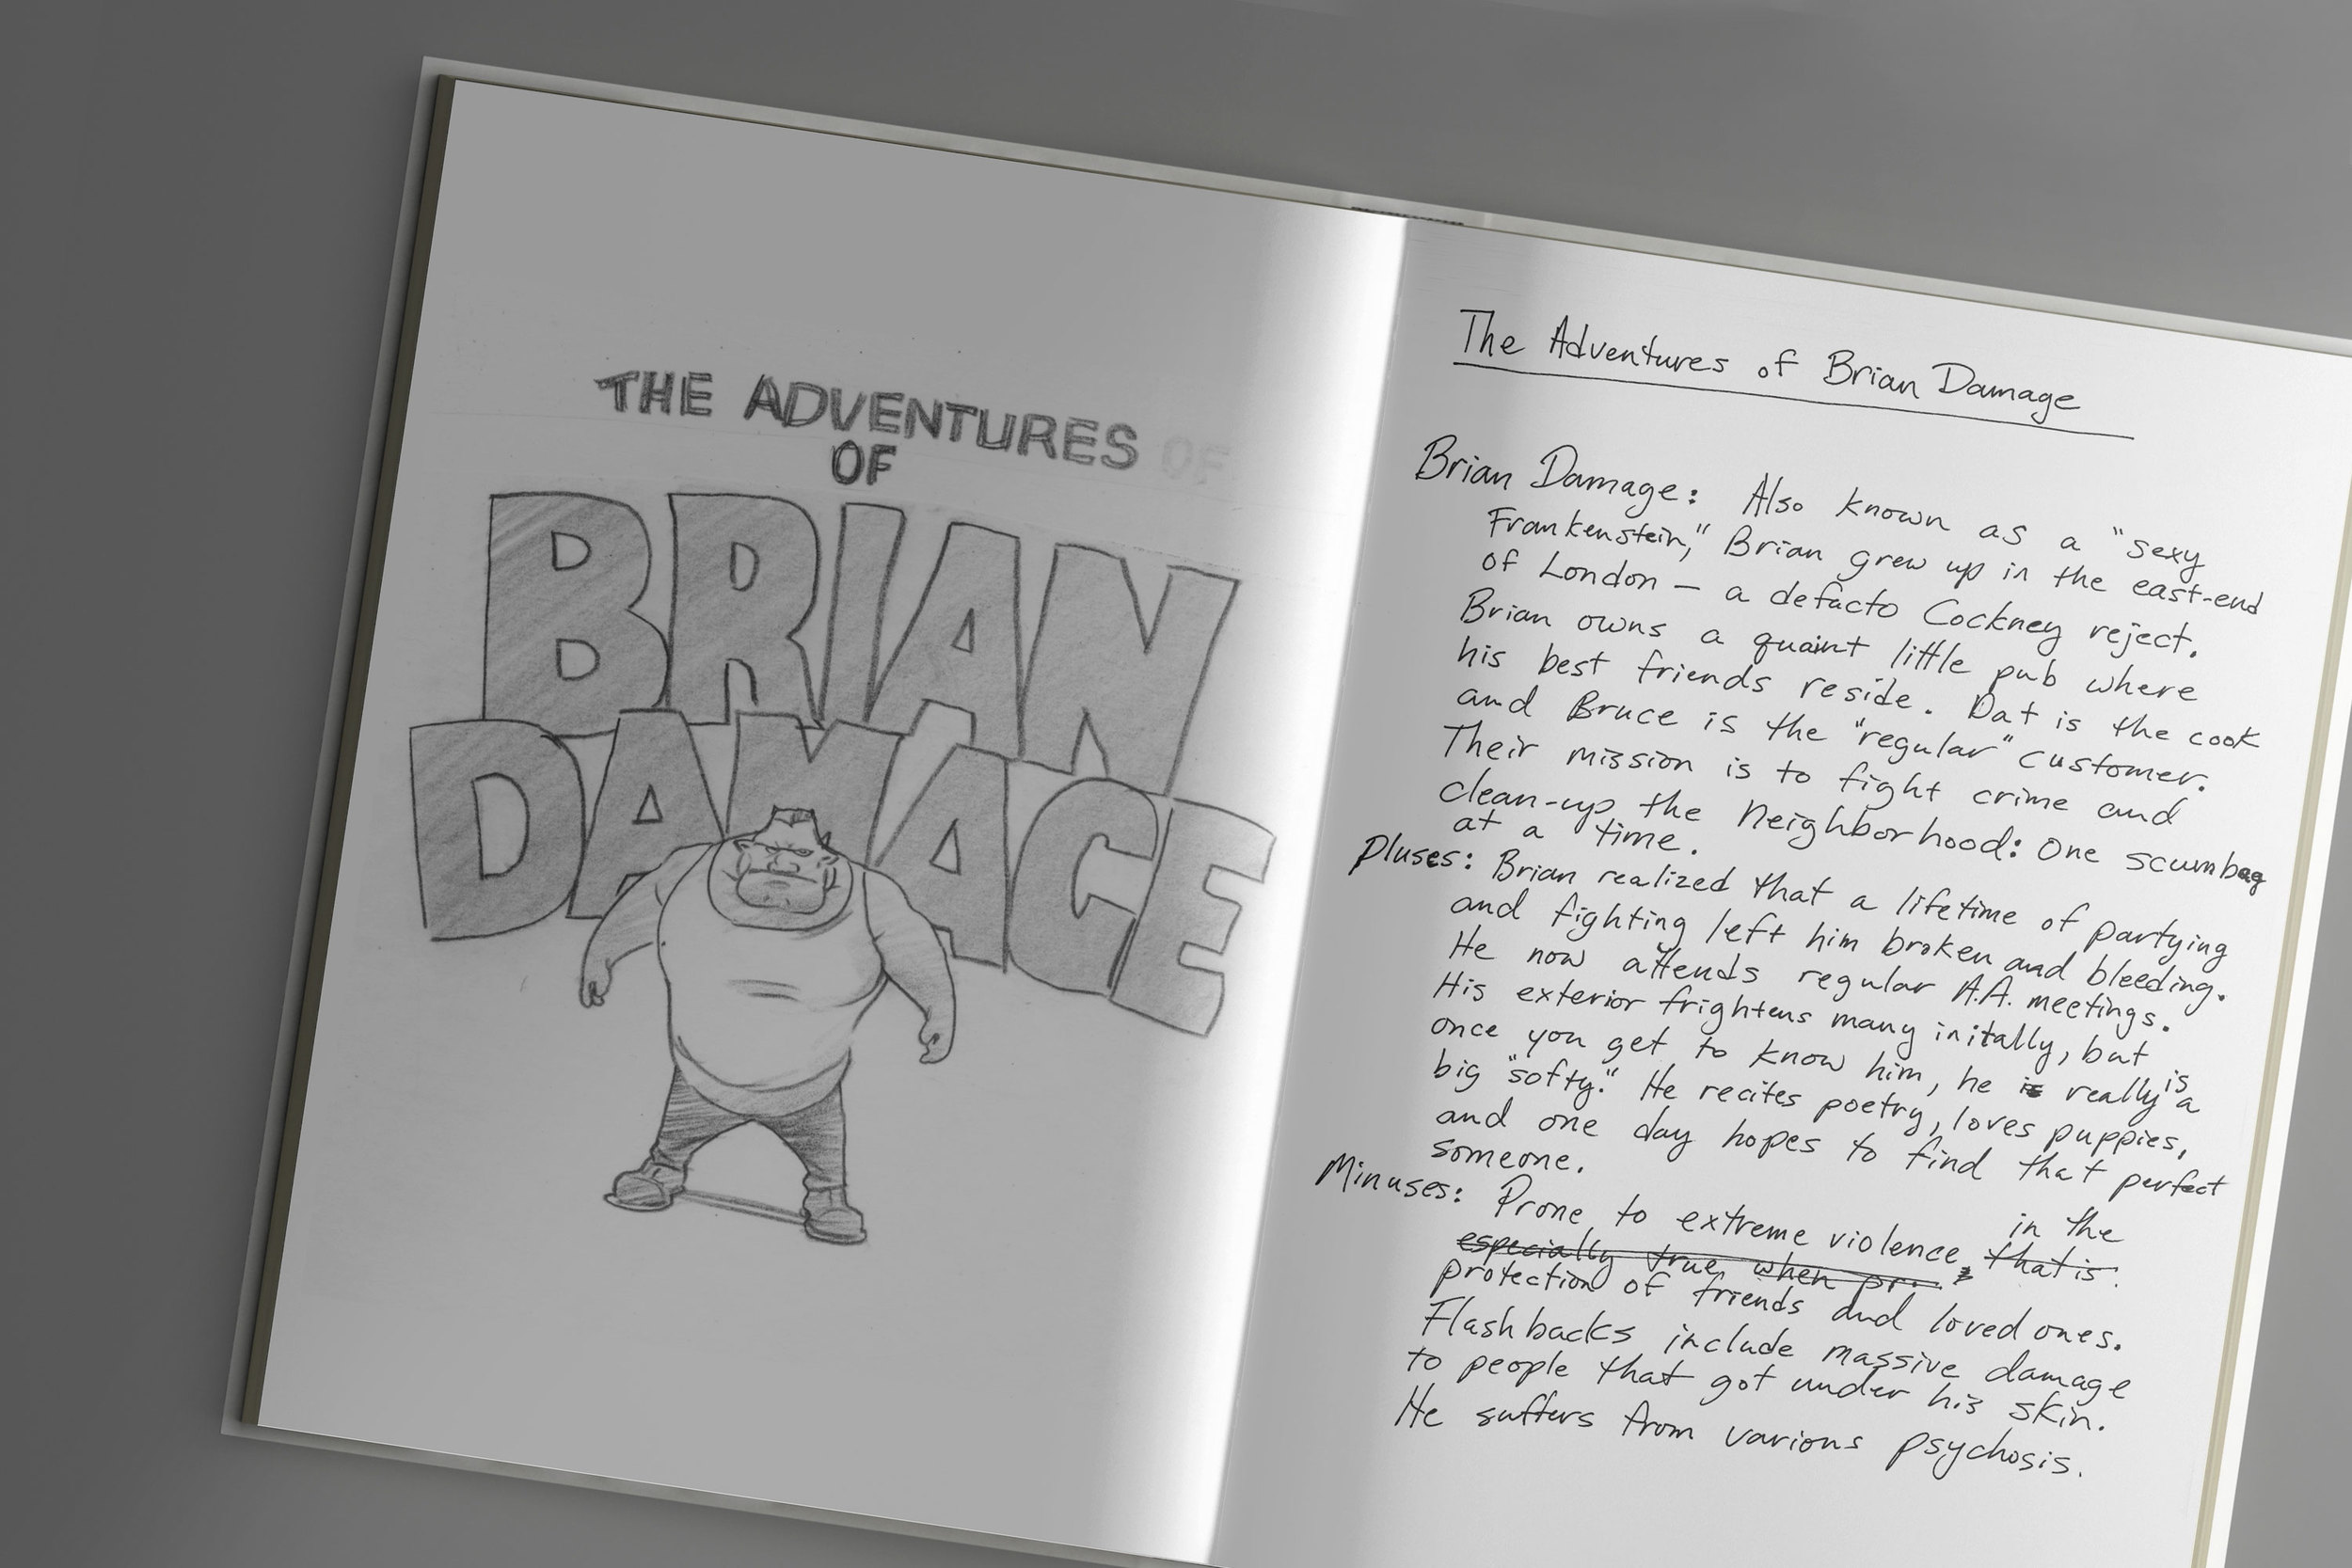 THE ADVENTURES OF
OF
BRIAN
DAMAGE
The Adventures of Brian Damage
Brian Damage: Also known as a "sexy
Frankenstein," Brian grew up in the east-end
of London – a defacto Cockney reject.
Brian owns a quaint little pub where
his best friends reside. Dat is the cook
and Bruce is the "regular" customer.
Their mission is to fight crime and
clean-up the Neighborhood: One scumbag
at a time.
Pluses: Brian realized that a lifetime of partying
and fighting left him broken and bleeding.
He now attends regular A.A. meetings.
His exterior frightens many initally, but
once you get to know him, he is really is a
big "softy." He recites poetry, loves puppies,
and one day hopes to find that perfect
someone.
Minuses: Prone to extreme violence, that is in the
especially true when pr.
protection of friends and loved ones.
Flashbacks include massive damage
to people that got under his skin.
He suffers from various psychosis.